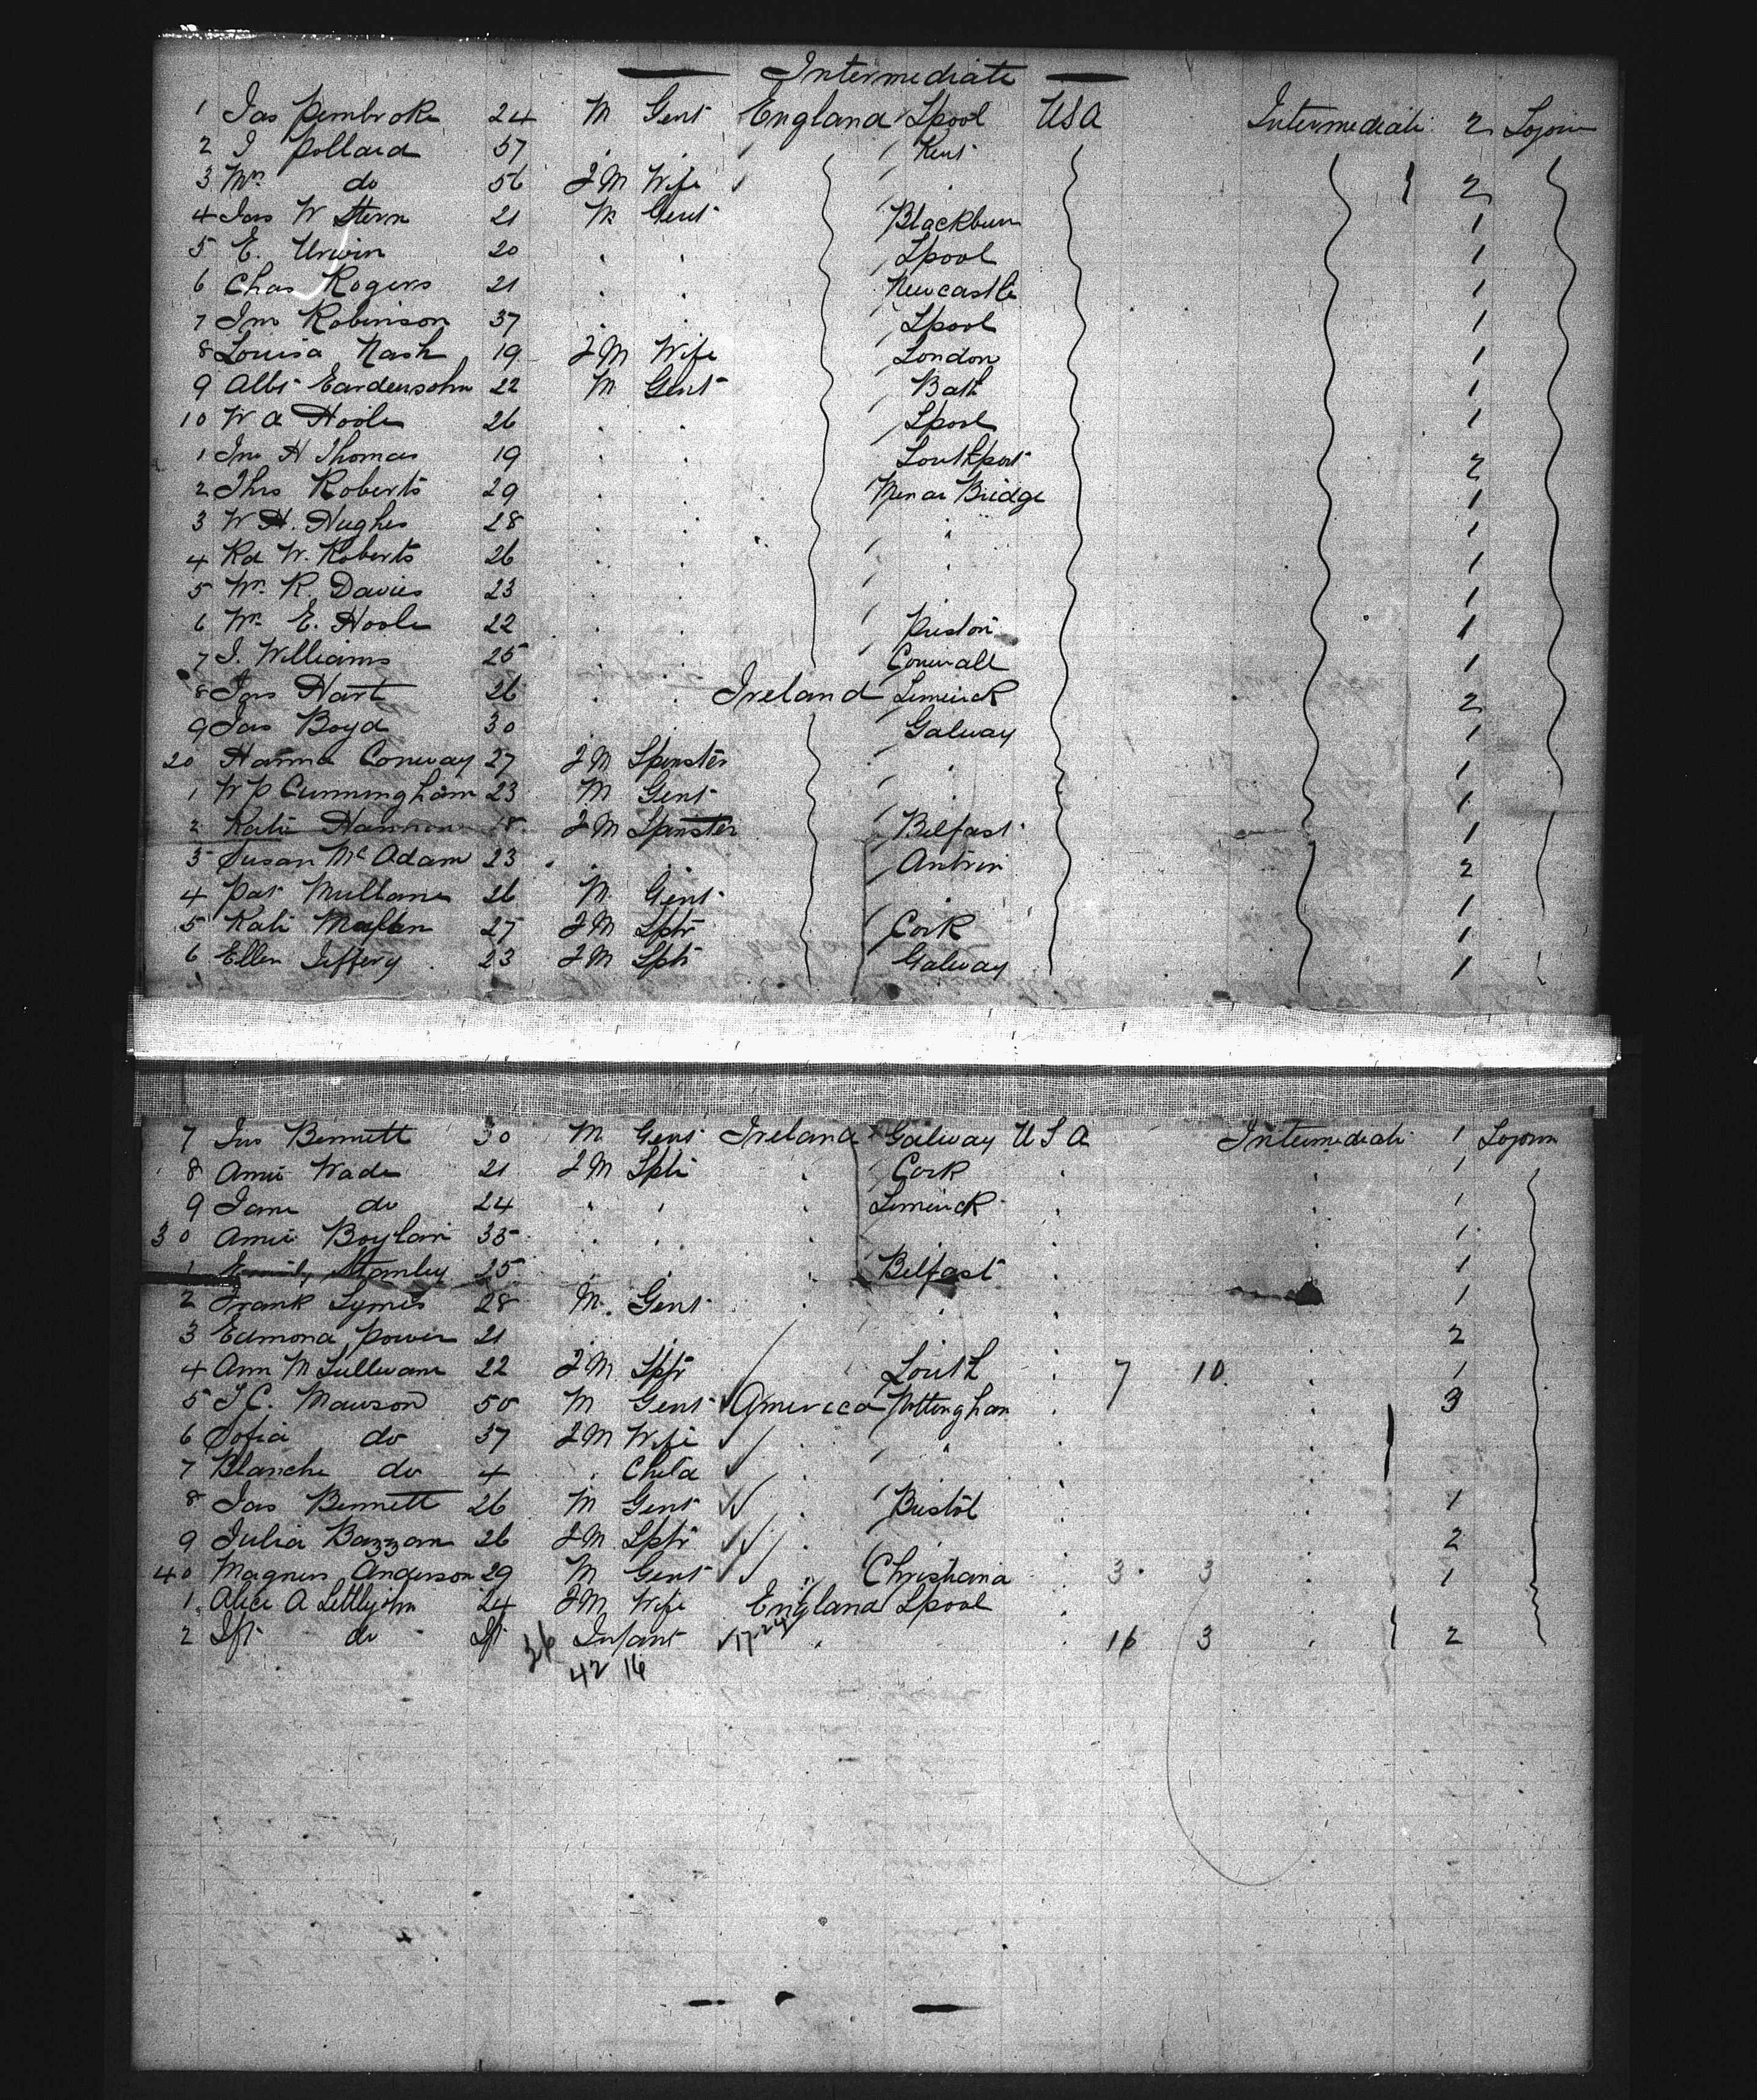 Intermediate
1 Jas Pembroke 24 M Gent England Lpool USA Intermediate 2 Sojourn
2 J Pollard 57 Kent
3 Mrs do 56 F M Wife 2
4 Jas W Stern 21 M Gent Blackburn 1
5 E. Unwin 20 Lpool 1
6 Chas Rogers 21 Newcastle 1
7 Jno Robinson 37 Lpool 1
8 Louisa Nash 19 F M Wife London 1
9 Albt 22 M Gent Bath 1
10 W A Hoole 26 Lpool 1
1 Jno H Thomas 19 Southport 2
2 Thos Roberts 29 Menai Bridge 1
3 W H. Hughes 28 " 1
4 Rd W. Roberts 26 1
5 Wm. R. Davies 23 1
6 Wm. E. Hoole 22 Preston 1
7 J. Williams 25 Cornwall 1
8 Jas Hart 26 Ireland Limerick 2
9 Jas Boyd 30 Galway 1
20 Hanna Conway 27 F M Spinster 1
1 W P Cunningham 23 M Gent 1
2 Katie Hannon 18 F M Spinster Belfast 1
3 Susan McAdam 23 Antrim 2
4 Pat Mullane 26 M Gent 1
5 Kate 27 F M Sptr Cork 1
6 Ellen Jeffery 23 F M Sptr Galway 1
7 Jno Bennett 30 M Gent Ireland Galway U S A Intermediate 1 Sojourn
8 Annie Wade 21 F M Sptr Cork 1
9 Jane do 24 Limerick 1
30 Annie Boylan 35 1
1 Emily Stanley 25 Belfast 1
2 Frank Symes 28 M Gent 1
3 Edmond Power 21 2
4 Ann M Sullivan 22 F M Sptr Louth 7 10 1
5 J C. Mawson 50 M Gent America Nottingham 3
6 Sofia do 37 F M Wife "
7 Blanche do 4 Child
8 Jas Bennett 26 M Gent Bristol 1
9 Julia Bazzam 26 F M Sptr 2
40 Magnus Anderson 29 M Gent " Christiana 3 3 1
1 Alice A Littlejohn 24 F M Wife England Lpool
2 Ift do Ift Infant 16 3 2
26 42 16